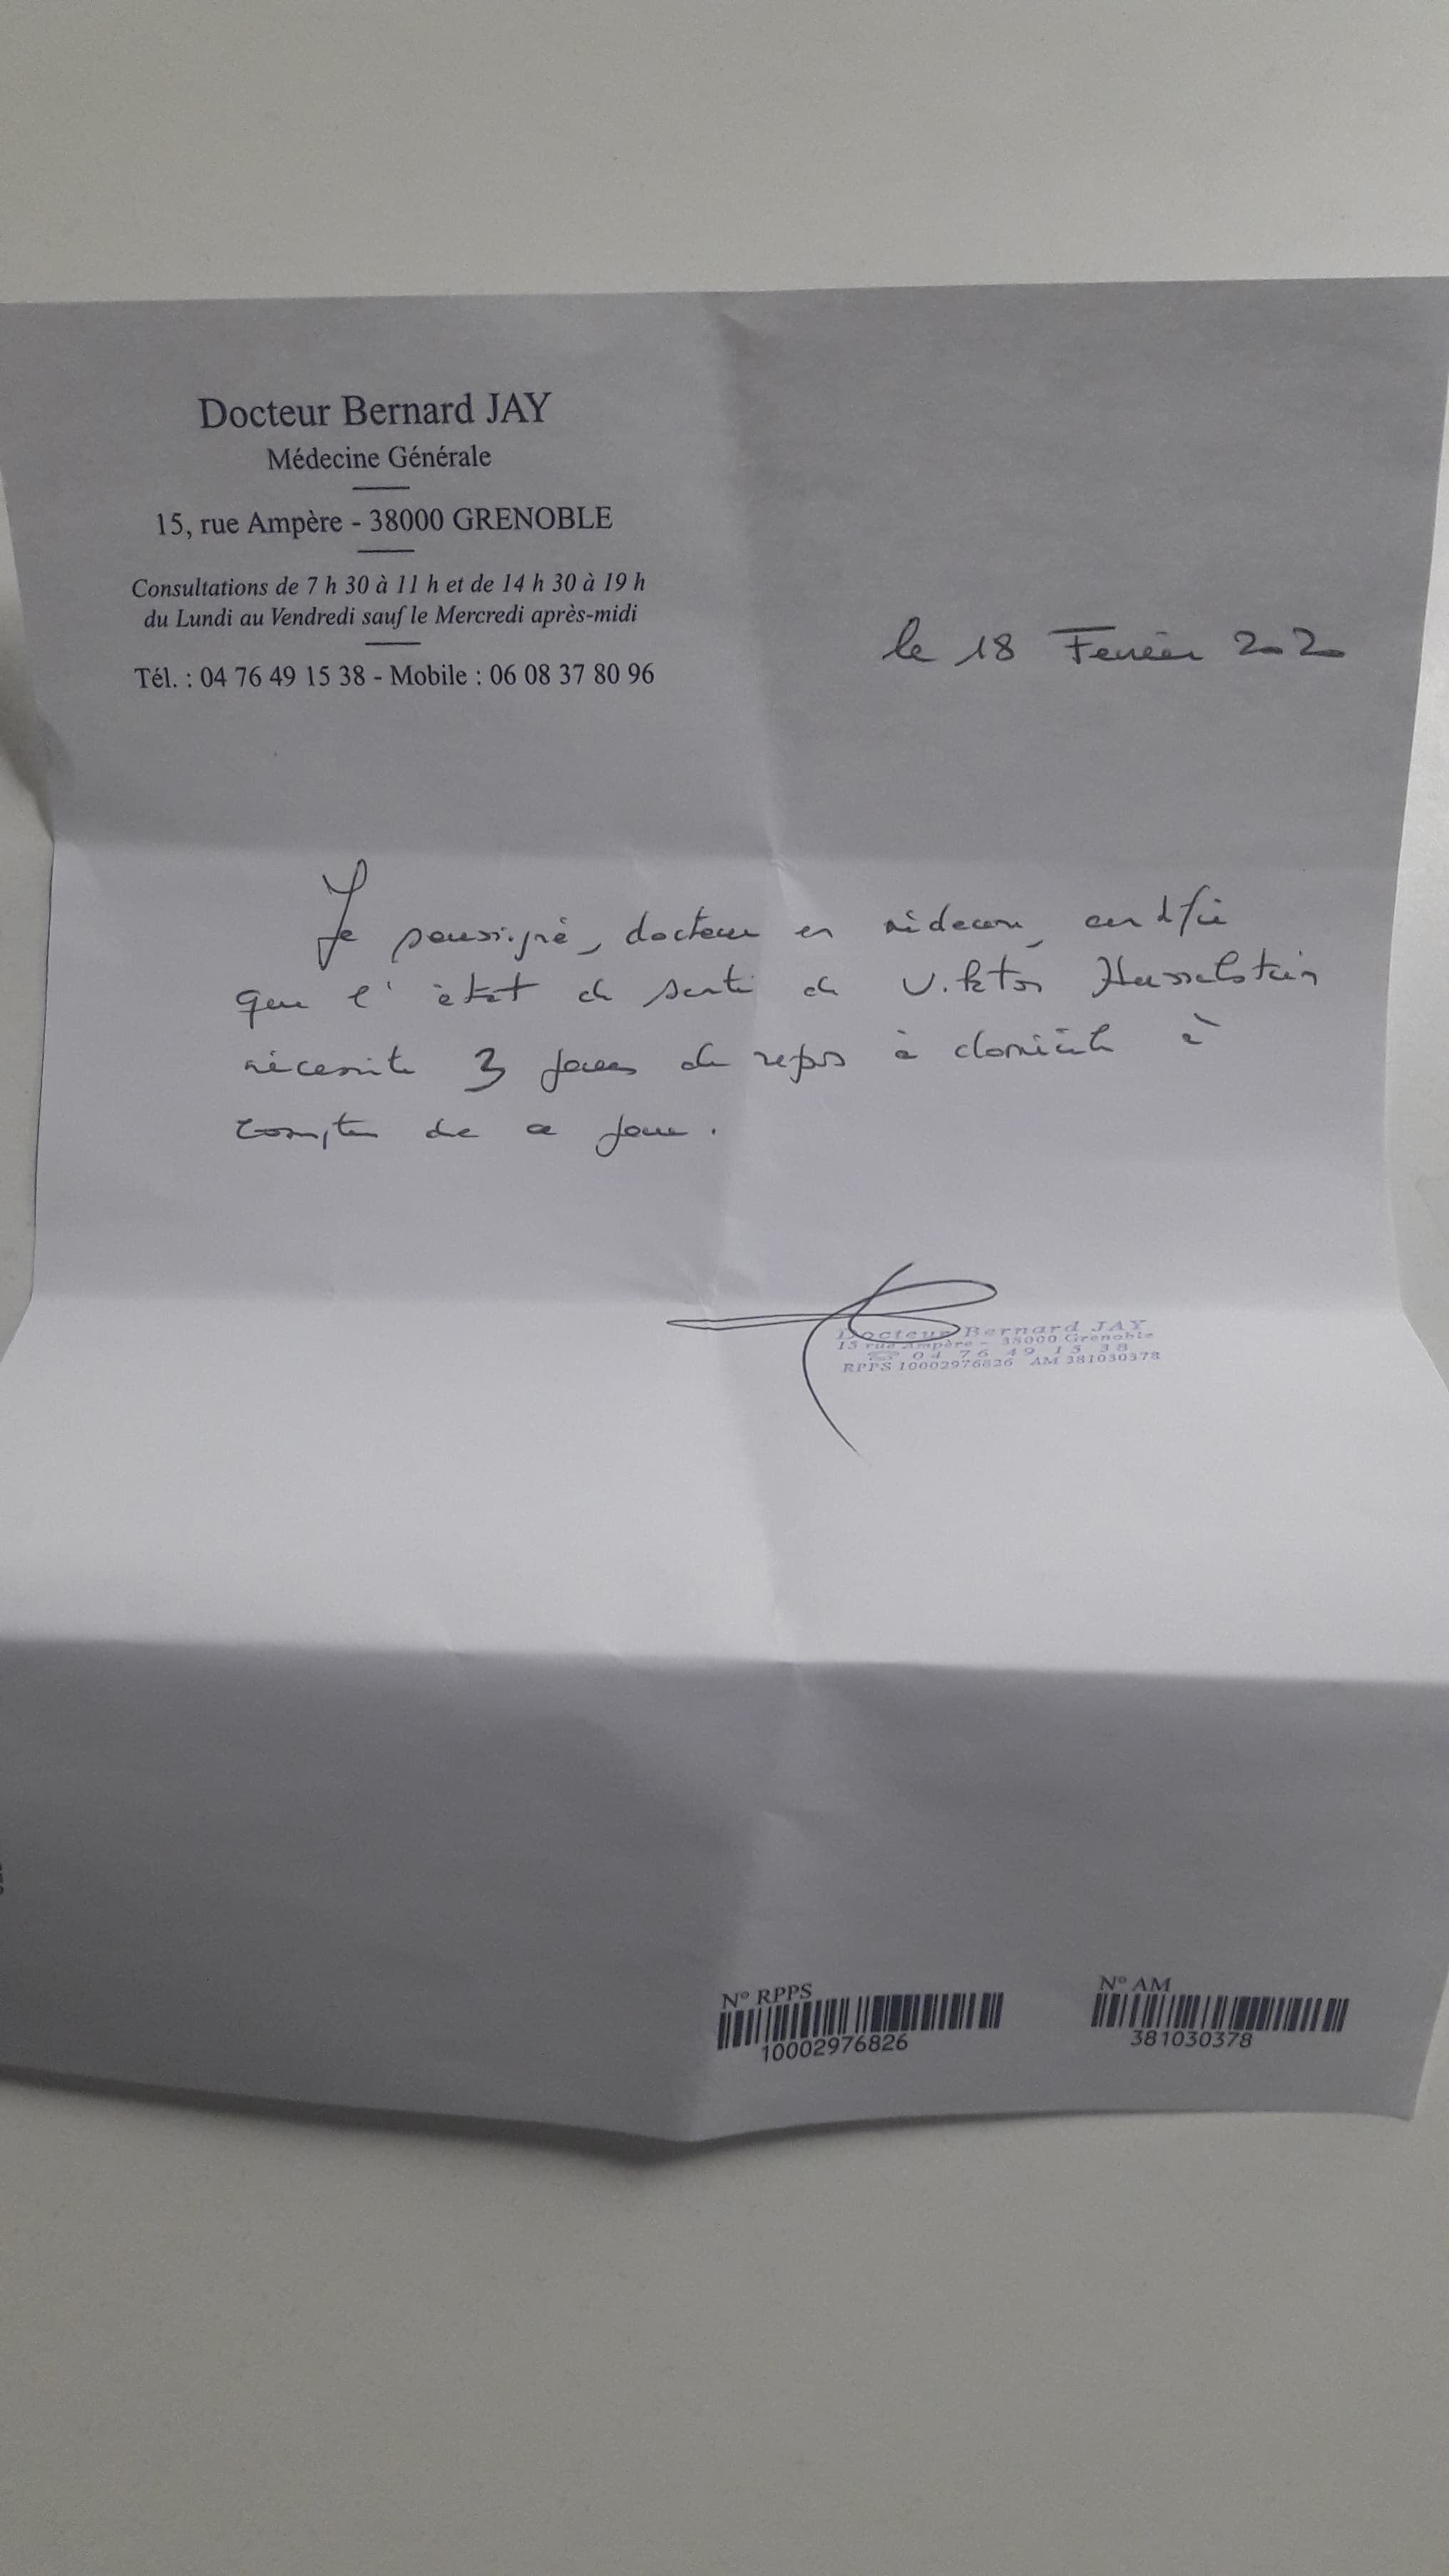 Docteur Bernard JAY
Médecine Générale
15, rue Ampère - 38000 GRENOBLE
Consultations de 7 h 30 à 11 h et de 14 h 30 à 19 h
du Lundi au Vendredi sauf le Mercredi après-midi
Tél. : 04 76 49 15 38 - Mobile : 06 08 37 80 96
le 18 Fevrier 2020
Je soussigné, docteur en médecine, certifie
que l'état de santé de Viktor Hasselstein
nécessite 3 jours de repos à domicile à
compter de ce jour.
Docteur Bernard JAY
15 rue Ampère - 38000 Grenoble
☎ 04 76 49 15 38
RPPS 10002976826 AM 381030378
N° RPPS
10002976826
N° AM
381030378